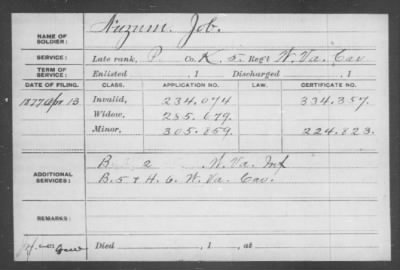 NAME OF SOLDIER: Nuzum, Job.
SERVICE: Late rank, P. Co. K, 5. Reg't W. Va. Cav
TERM OF SERVICE: Enlisted , 1 Discharged , 1
DATE OF FILING. CLASS. APPLICATION NO. LAW. CERTIFICATE NO.
1877 Apr 13. Invalid, 234.074 334.357.
Widow,
Minor, 305.859. 224.823.
ADDITIONAL SERVICES: B 2 W. Va. Inf
B. 5 & H. 6. W. Va. Cav.
REMARKS:
Died , 1 , at